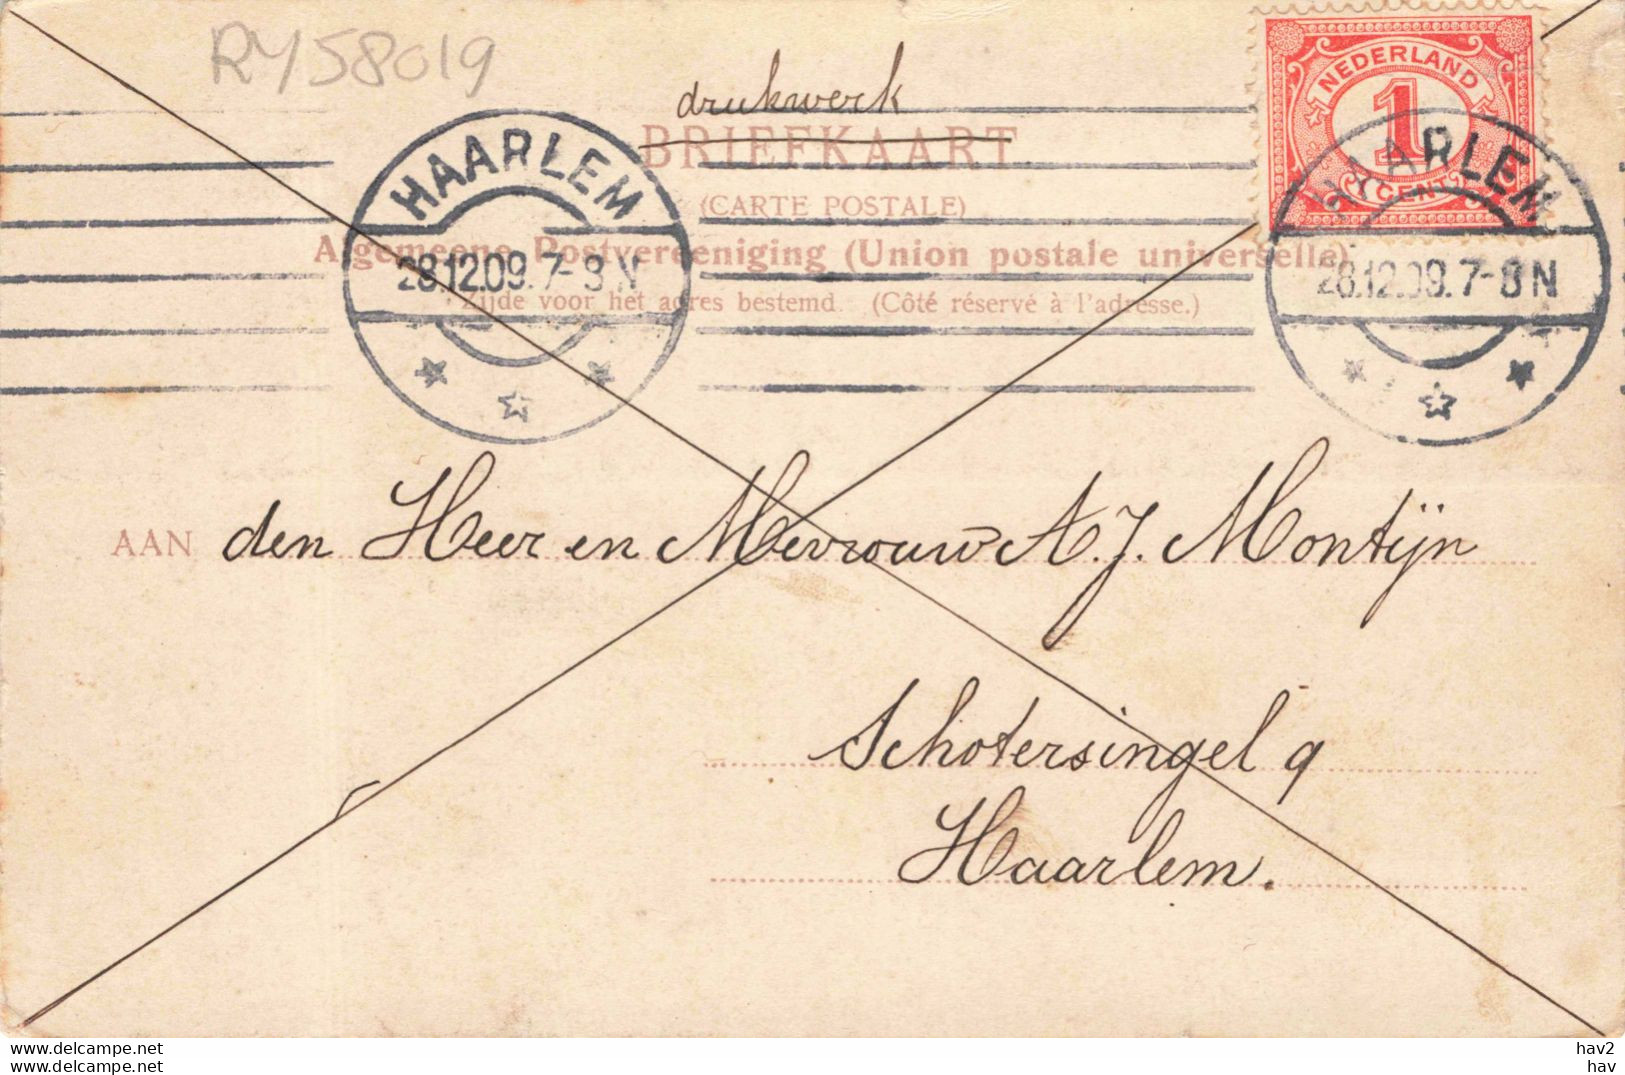 RY58019
drukwerk
BRIEFKAART
(CARTE POSTALE)
Algemeene Postvereeniging (Union postale universelle)
Zijde voor het adres bestemd. (Côté réservé à l'adresse.)
NEDERLAND
1
CENT
HAARLEM
28.12.09.7-8 N
HAARLEM
28.12.09.7-8 N
AAN den Heer en Mevrouw A. J. Montijn
Schotersingel 9
Haarlem.
Website : delcampe.net
hav2
hav